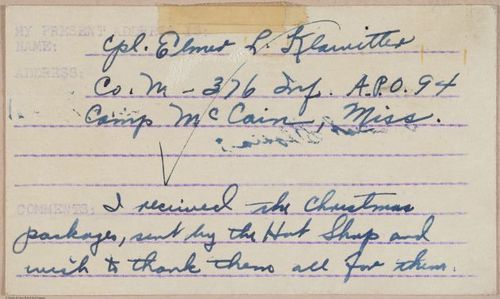 MY PRESENT ADDRESS IS:
NAME: Cpl. Elmer L. Klawitter
ADDRESS: Co. M - 376 Inf. A.P.O. 94
Camp McCain, Miss.
COMMENTS: I received the Christmas
packages, sent by the Hut Shop and
wish to thank them all for them.